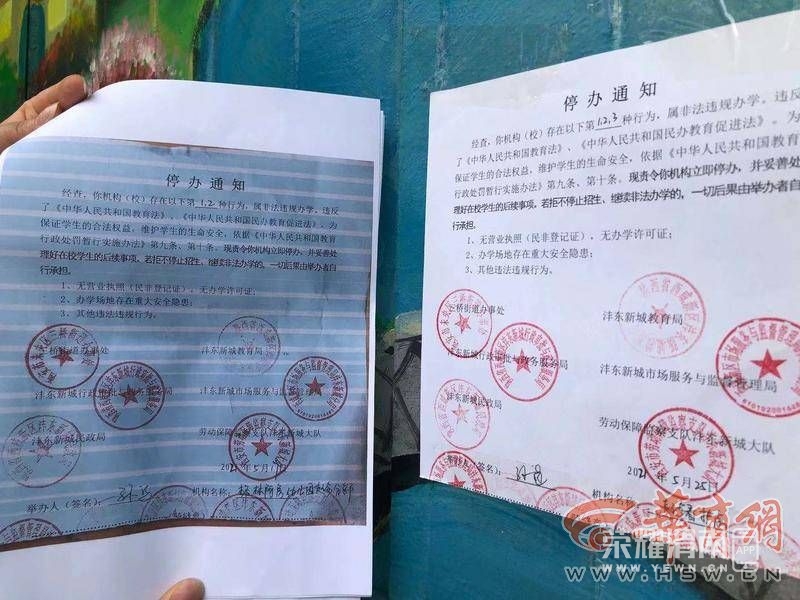 停办通知
经查，你机构（校）存在以下第1.2种行为，属非法违规办学，违反
了《中华人民共和国教育法》、《中华人民共和国民办教育促进法》。为
保证学生的合法权益，维护学生的生命安全，依据《中华人民共和国教育
行政处罚暂行实施办法》第九条、第十条。现责令你机构立即停办，并妥善处
理好在校学生的后续事项。若拒不停止招生、继续非法办学的，一切后果由举办者自
行承担。
1、无营业执照（民非登记证），无办学许可证；
2、办学场地存在重大安全隐患；
3、其他违法违规行为。
三桥街道办事处
沣东新城行政审批与政务服务局
沣东新城市场服务与监督管理局
沣东新城民政局
劳动保障监察支队沣东新城大队
2021年5月
举办人（签名）：
机构名称：
停办通知
经查，你机构（校）存在以下第1.2.3种行为，属非法违规办学，违反
了《中华人民共和国教育法》、《中华人民共和国民办教育促进法》。为
保证学生的合法权益，维护学生的生命安全，依据《中华人民共和国教育
行政处罚暂行实施办法》第九条、第十条。现责令你机构立即停办，并妥善
理好在校学生的后续事项。若拒不停止招生、继续非法办学的，一切后果由举办者自
行承担。
1、无营业执照（民非登记证），无办学许可证；
2、办学场地存在重大安全隐患；
3、其他违法违规行为。
三桥街道办事处
沣东新城教育局
沣东新城行政审批与政务服务局
沣东新城市场服务与监督管理局
沣东新城民政局
劳动保障监察支队沣东新城大队
2021年5月25日
（签名）：
机构名称：
华商网
荣耀渭南网APP
WWW.YEWN.CN
WWW.HSW.CN